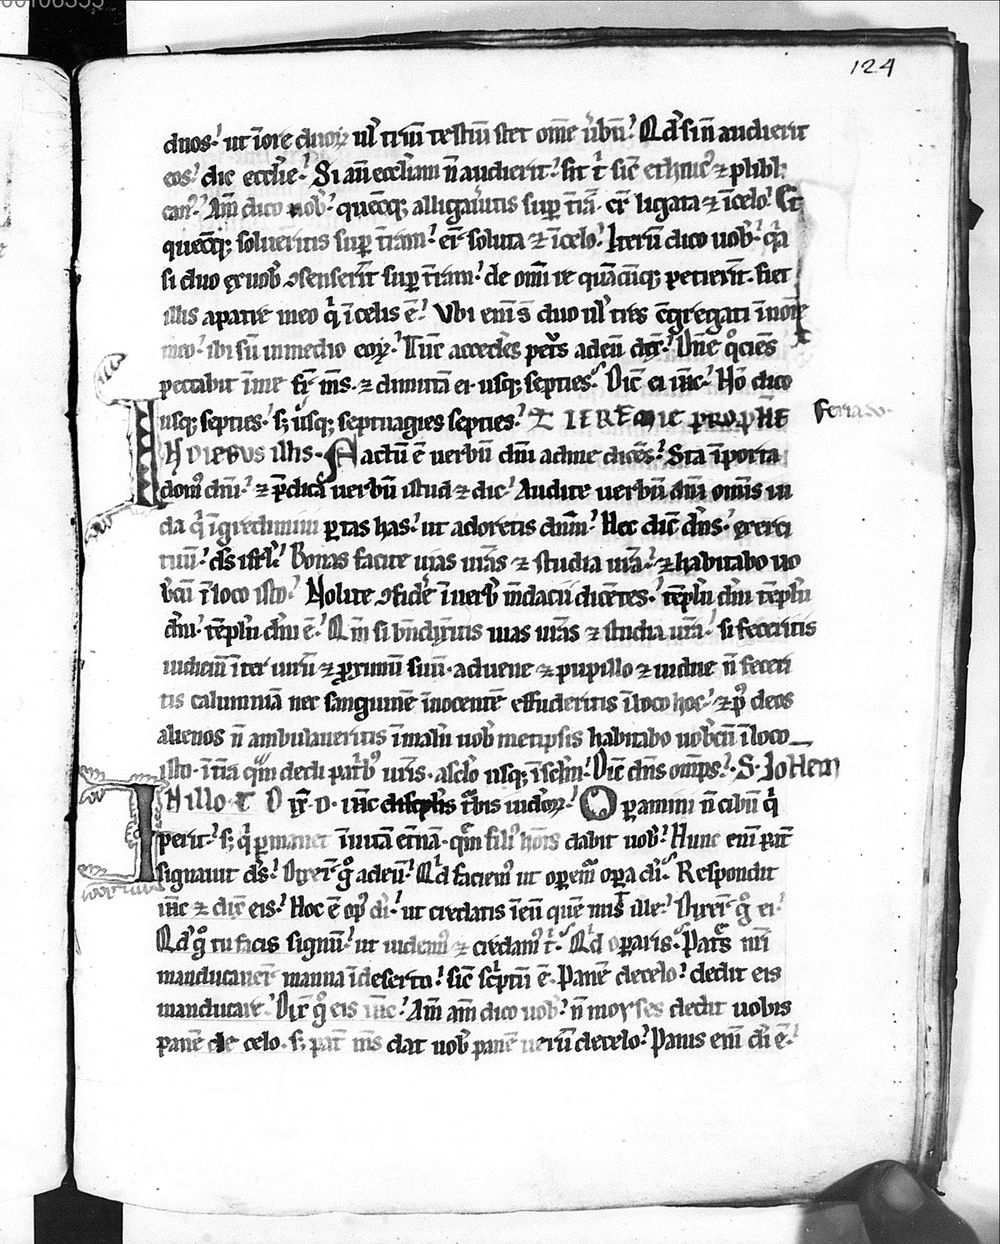 124
duos. ut ī ore duoꝝ ul triū testiū stet om̄e ūbū. Qd̓ si ñ audierit
eos. dic ecctie. Si aū ecctiam ñ audierit. sit t̓ sic̄ ethnic̓ ⁊ publi
can̓. Am̄ dico uob̓. quecq; alligau̓itis suꝑ t̄rā. er̄ ligata ⁊ ī celo. Et
quecq; solueritis suꝑ t̄ram. er̄ soluta ⁊ ī celo. Iterū dico uob̓. qa
si duo ex uob̓ ꝯsenserīt suꝑ t̄ram. de omī re quācūq; petierīt. fiet
illis a patre meo q̓ ī celis ē. Vbi enī s̄ duo ul tres ꝯgregati ī noīe
meo. ibi sū in medio eoꝝ. Tūc accedēs petr̓s ad eū dix̄. Dn̄e q̓ciēs
peccabit ī me fr̄ m̄s. ⁊ dimittā ei. usq; septies. Dic̄ ei ih̄c. Nō dico
usq; septies. s; usq; septuagies septies. IEREMIE PROPHE
IN DIEBUS illis. Factū ē uerbū dn̄i ad me dicēs. Sta ī porta
dom̓ dn̄i. ⁊ p̄dica uerbū istud ⁊ dic. Audite uerbū dn̄i om̄is iu
da q̓ īgredimini ꝑ tas has. ut adoretis dn̄m. Hec dic̄ dn̄s. exerci
tuū. ds̄ isrl̓. Bonas facite uias ur̄as ⁊ studia ur̄a. ⁊ habitabo uo
b̓cū ī loco isto. Nolite ꝯfide̓ ī uerb̓ m̄dacii dicētes. tēplū dn̄i tēplū
dn̄i. tēplū dn̄i ē. Qm̄ si bn̄dix̓itis uias ur̄as ⁊ studia ur̄a. si feceritis
iudiciū īter uirū ⁊ ꝓximū suū. aduene ⁊ pupillo ⁊ uidue ñ feceri
tis calumniā nec sanguinē īnocentē effuderitis ī loco hoc. ⁊ p̓ deos
alienos ñ ambulaueritis ī malū uob̓ metipsis habitabo uob̓cū ī loco
isto. ī t̄ra qm̄ dedi patrib̓ ur̄is. a sclo usq; ī sclm̄. Dic̄ dn̄s omīps. S. Johem
IN illo. T. Dix̄. D. ih̄c discipl̓is ⁊ t̓bis iudeoꝝ. Opamini ñ cibū q̓
perit. s; q̓ ꝑmanet ī uitā etn̄ā. qm̄ fili̓ hoīs dabit uob̓. Hunc enī pat̓
signauit ds̄. Dixer̄t g̓ ad eū. Qd̓ faciem̓ ut oꝑem̓ oꝑa di̓. Respondit
ih̄c ⁊ dix̄ eis. Hoc ē op̓ di̓. ut credatis ī eū quē mis̓ ille. Dixer̄ g̓ ei.
Qd̓ g̓ tu facis signū. ut uideam̓ ⁊ credam̓ t̓. Qd̓ oꝑaris. Pat̓s nr̄i
manducauer̄t manna ī deserto. sic̄ sc̓ptū ē. Panē de celo. dedit eis
manducare. Dix̄ g̓ eis ih̄c. Am̄ am̄ dico uob̓. ñ moyses dedit uobis
panē de celo. s; pat̓ m̄s dat uob̓ panē uerū de celo. Panis enī di̓ ē.